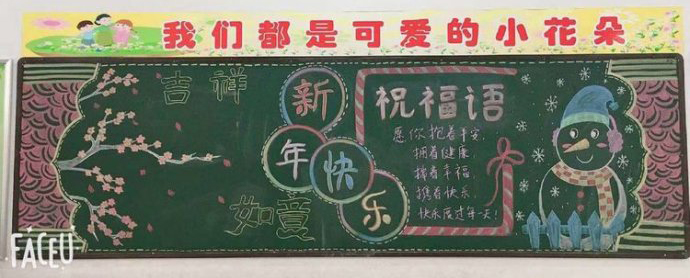 我们都是可爱的小花朵
吉祥
新年快乐
如意
祝福语
愿你抱着平安,
拥着健康,
揣着幸福,
携着快乐,
快乐度过每一天!
FACEU